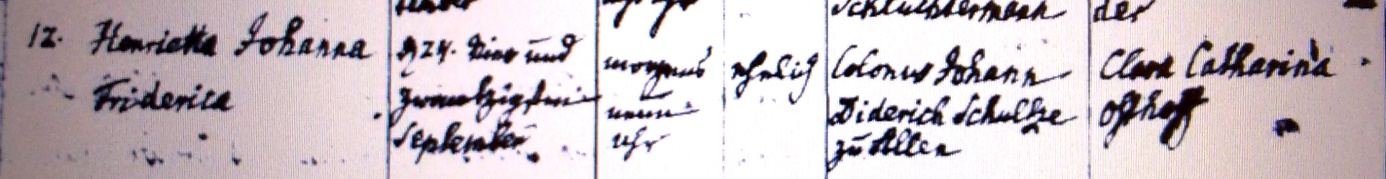 der
Schlüchtermann
12. Henrietta Johanna
Friderica
d 24. Vier und
zwantzigsten
September
morgens
neun
Uhr
ehelich
Colonus Johann
Diderich Schultze
zu Allen
Clara Catharina
Osthoff